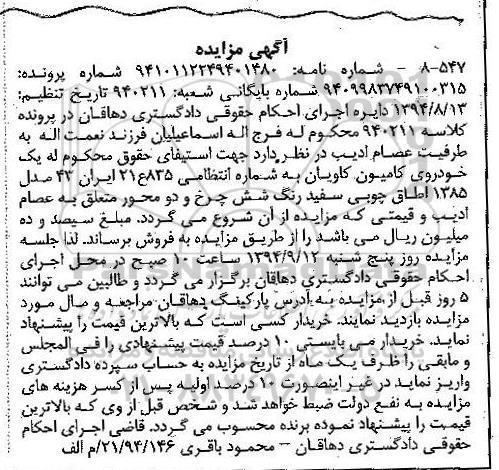 آگهی مزایده
۸-۵۴۷ - شماره نامه: ۹۴۱۰۱۱۲۲۴۹۴۰۱۴۸۰ شماره پرونده:
۹۴۰۹۹۸۳۷۴۹۱۰۰۳۱۵ شماره بایگانی شعبه: ۹۴۰۲۱۱ تاریخ تنظیم:
۱۳۹۴/۸/۱۳ دایره اجرای احکام حقوقی دادگستری دهاقان در پرونده
کلاسه ۹۴۰۲۱۱ محکوم له فرج اله اسماعیلیان فرزند نعمت اله به
طرفیت عصام ادیب در نظر دارد جهت استیفای حقوق محکوم له یک
خودروی کامیون کاویان به شماره انتظامی ۸۳۵ع۲۱ ایران ۴۳ مدل
۱۳۸۵ اطاق چوبی سفید رنگ شش چرخ و دو محور متعلق به عصام
ادیب و قیمتی که مزایده از آن شروع می گردد. مبلغ سیصد و ده
میلیون ریال می باشد را از طریق مزایده به فروش برساند. لذا جلسه
مزایده روز پنج شنبه ۱۳۹۴/۹/۱۲ ساعت ۱۰ صبح در محل اجرای
احکام حقوقی دادگستری دهاقان برگزار می گردد و طالبین می توانند
۵ روز قبل از مزایده به آدرس پارکینگ دهاقان مراجعه و مال مورد
مزایده بازدید نمایند. خریدار کسی است که بالاترین قیمت را پیشنهاد
نماید. خریدار می بایستی ۱۰ درصد قیمت پیشنهادی را فی المجلس
و مابقی را ظرف یک ماه از تاریخ مزایده به حساب سپرده دادگستری
واریز نماید در غیر اینصورت ۱۰ درصد اولیه پس از کسر هزینه های
مزایده به نفع دولت ضبط خواهد شد و شخص قبل از وی که بالاترین
قیمت را پیشنهاد نموده برنده محسوب می گردد. قاضی اجرای احکام
حقوقی دادگستری دهاقان - محمود باقری ۲۱/۹۴/۱۴۶/م الف